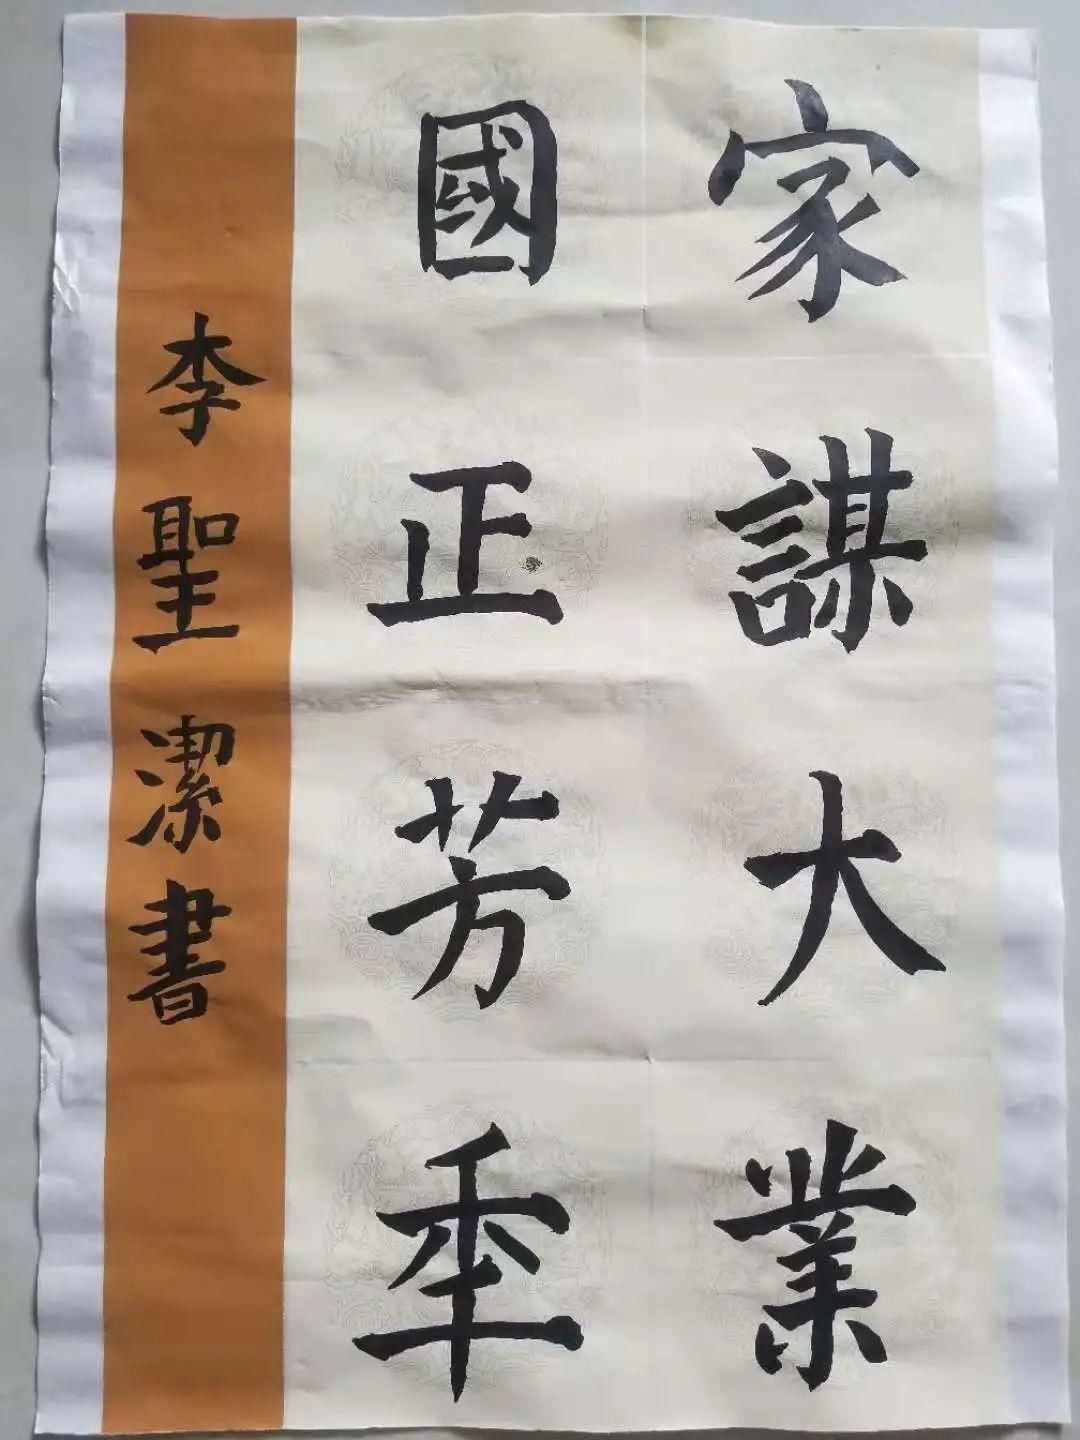 家謀大業
國正芳年
李聖潔書